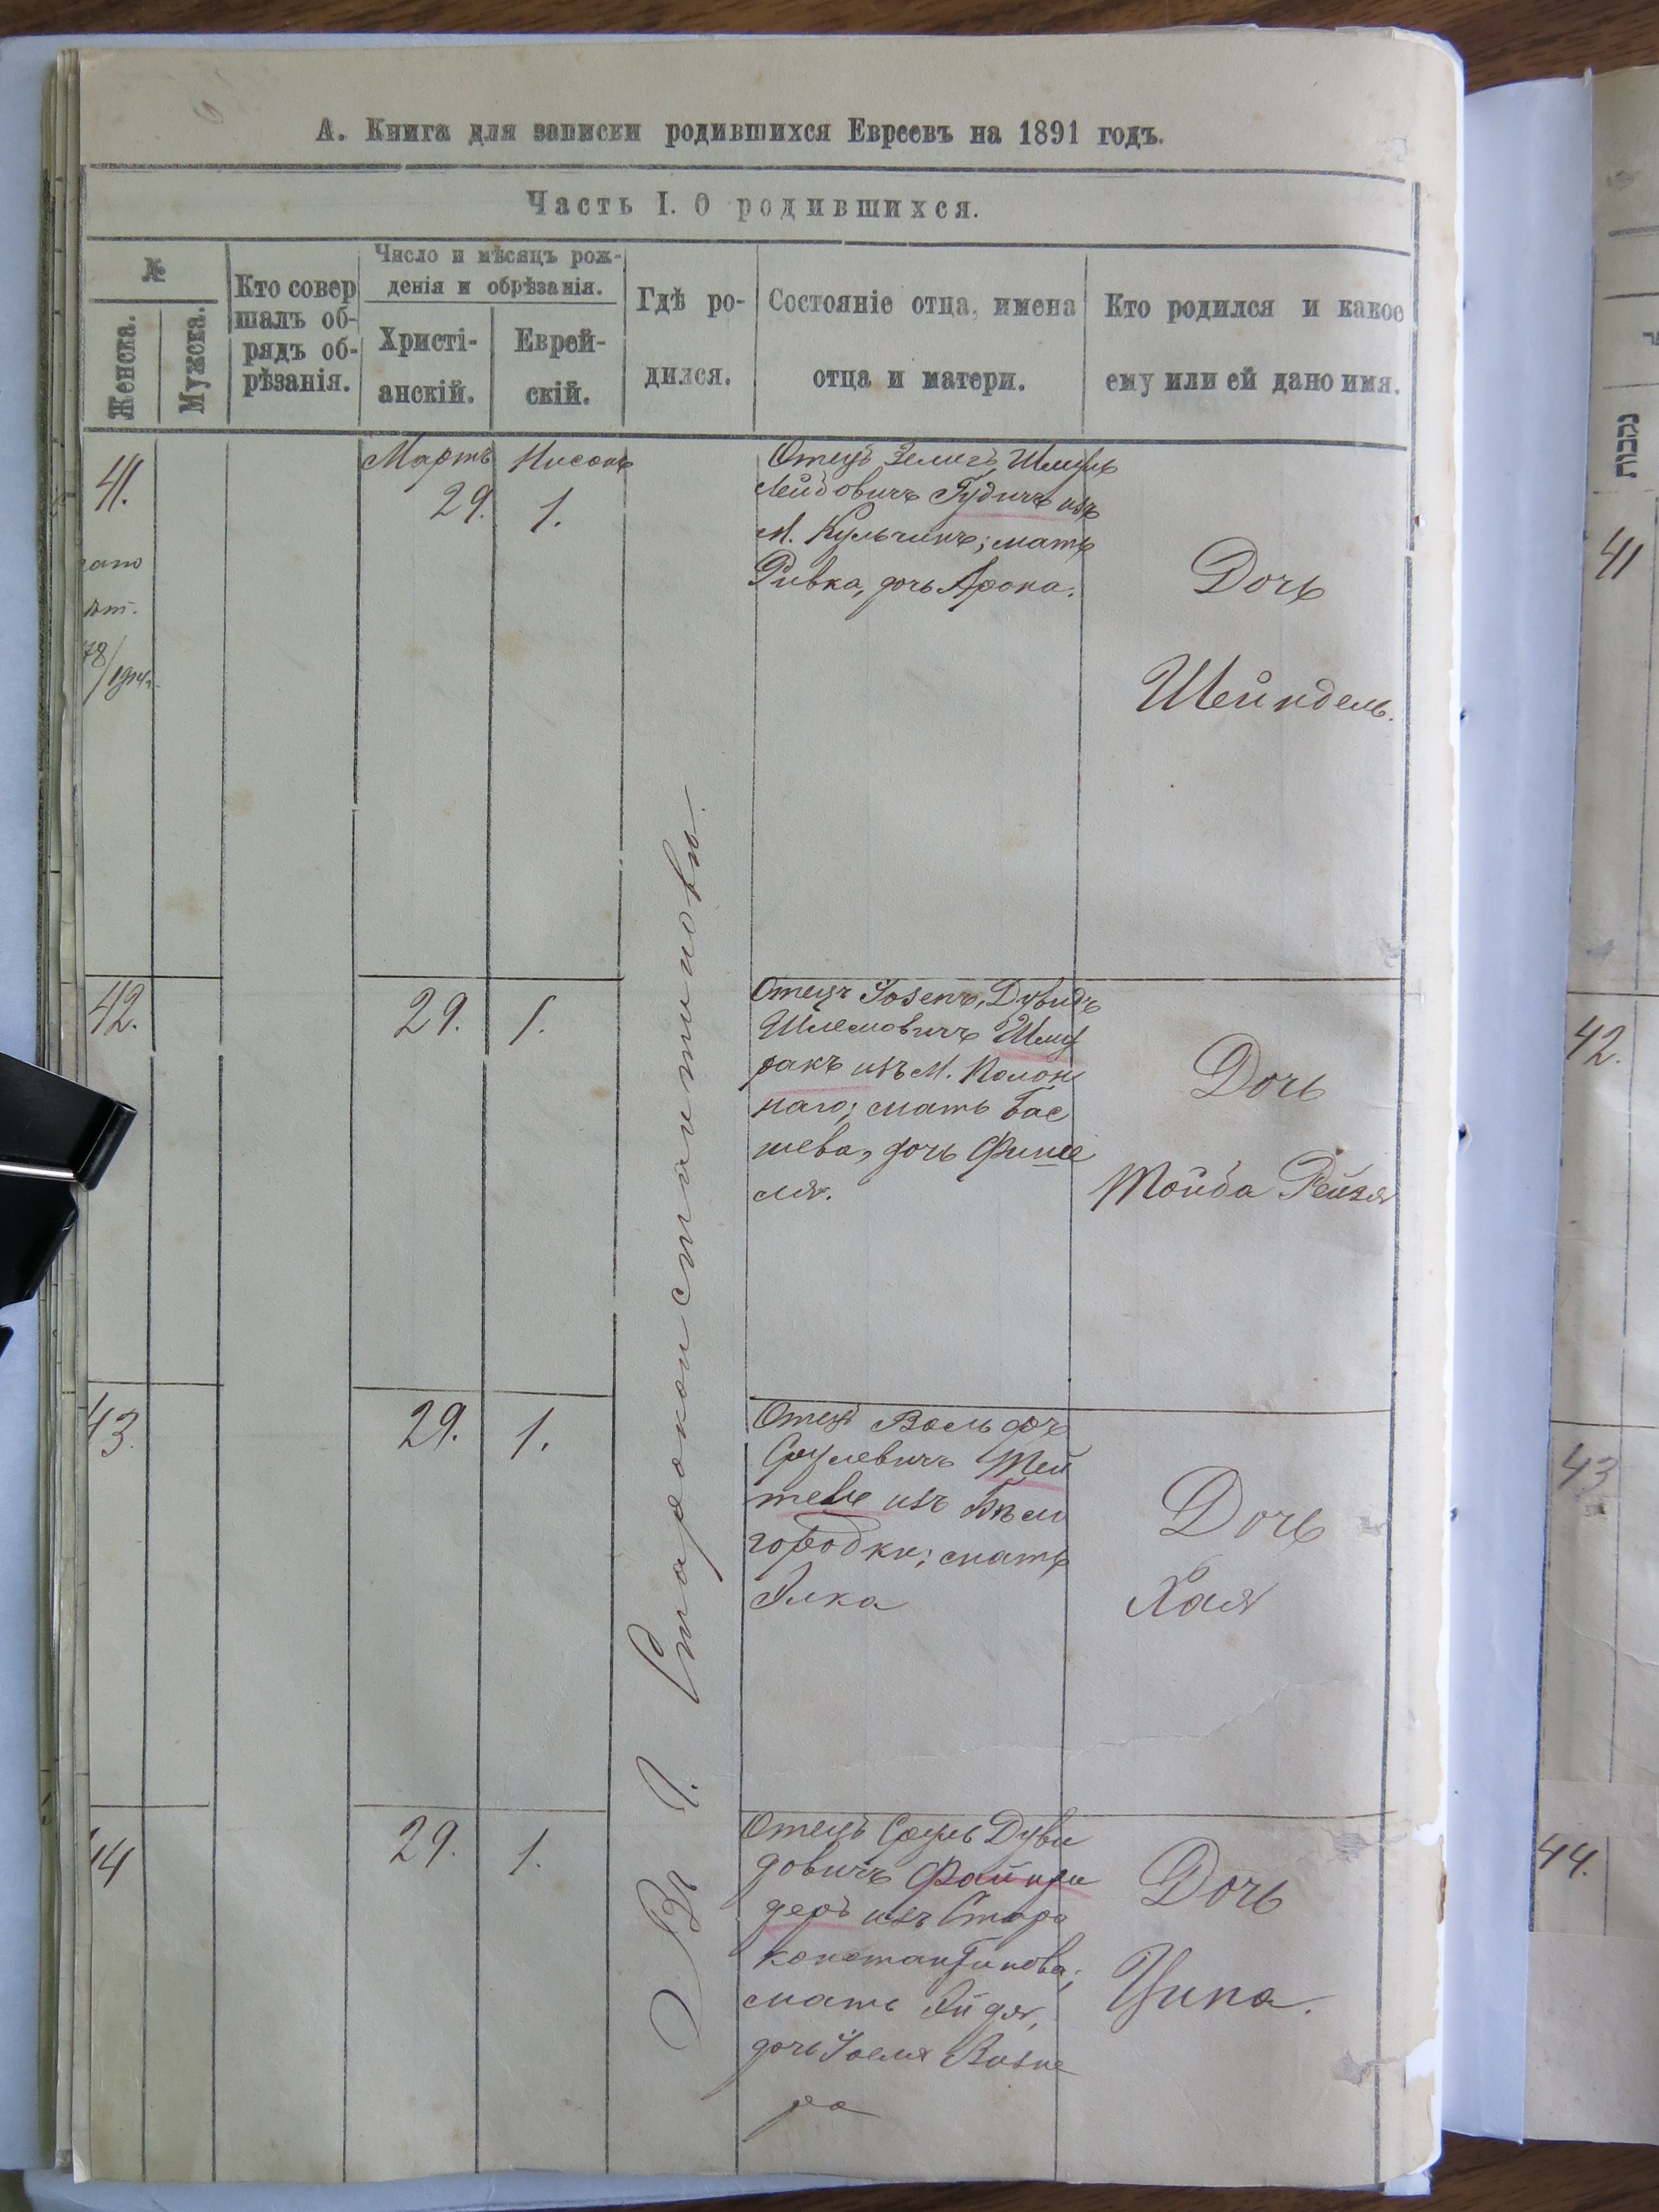 А. Книга для записки родившихся Евреевъ на 1891 годъ.
Часть I. О родившихся.
№
Женска.
Мужска.
Кто совер
шалъ об-
рядъ об-
рѣзанія.
Число и мѣсяцъ рож-
денія и обрѣзанія.
Христі-
анскій.
Еврей-
скій.
Гдѣ ро-
дился.
Состояніе отца, имена
отца и матери.
Кто родился и какое
ему или ей дано имя.
41.
Мартъ
29.
Нисонъ
1.
Отецъ Зелигъ Шмуль
Лейбовичъ Гудичъ изъ
М. Кульчинъ; мать
Ривка, дочь Арона.
Дочь
Шейндель.
Въ г. Староконстантиновѣ.
42.
29.
1.
Отецъ Іозепъ, Дувидъ
Шлемовичъ Шму
ракъ изъ М. Полон
наго; мать Бас
шева, дочь Фише
ля.
Дочь
Тойба Рейзя
43.
29.
1.
Отецъ Вольфъ
Срулевичъ Тей
телѣ изъ Бѣло
городки; мать
Элка
Дочь
Хая
44
29.
1.
Отецъ Сруль Дуви
довичъ Файнши
деръ изъ Старо
константинова;
мать Эйдя,
дочь Іоеля Визне
ра
Дочь
Ципа.
נקבות
41
42.
43
44.